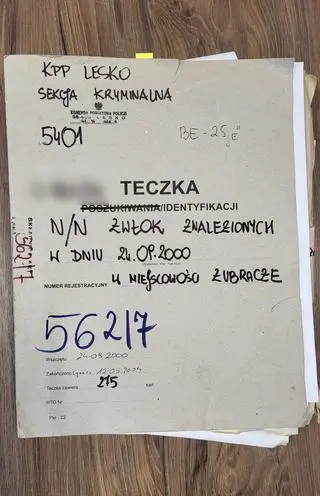 KPP LESKO
SEKCJA KRYMINALNA
KOMENDA POWIATOWA POLICJI
5401
BE-25 "E"
TECZKA
POSZUKIWANIA/IDENTYFIKACJI
N/N ZWŁOK ZNALEZIONYCH
W DNIU 24.09.2000
W MIEJSCOWOŚCI ŻUBRACZE
NUMER REJESTRACYJNY
562/7
562/7
Wszczęto:
Zakończono
Teczka zawiera 215 kart.
RTO Nr